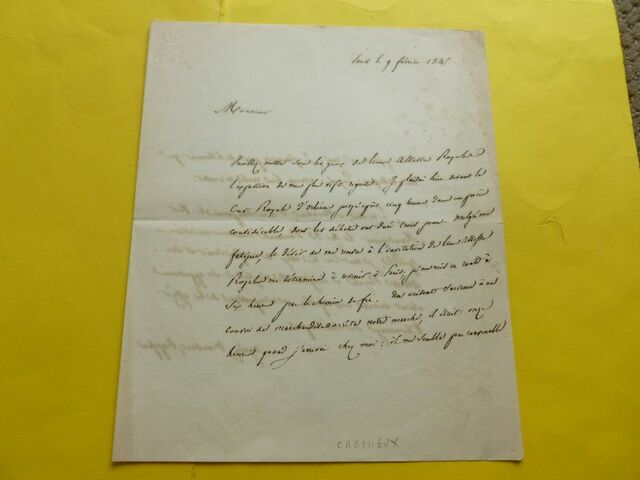 Paris le 9 février 1845
Monsieur
Veuillez mettre sous les yeux de leurs Altesses Royales
l'expression de mes plus vifs regrets. Je plaidai hier devant la
Cour Royale d'Orléans jusqu'après cinq heures dans un procès
considérable, dont les débats ont duré trois jours. Malgré ma
fatigue, le désir de me rendre à l'invitation de leurs Altesses
Royales me détermina à revenir à Paris, je me mis en route à
six heures par le chemin de fer. Un accident survenu à un
convoi de marchandises arrêta notre marche, il était onze
heures quand j'arrivai chez moi : il me sembla peu convenable
CRESMIEUX